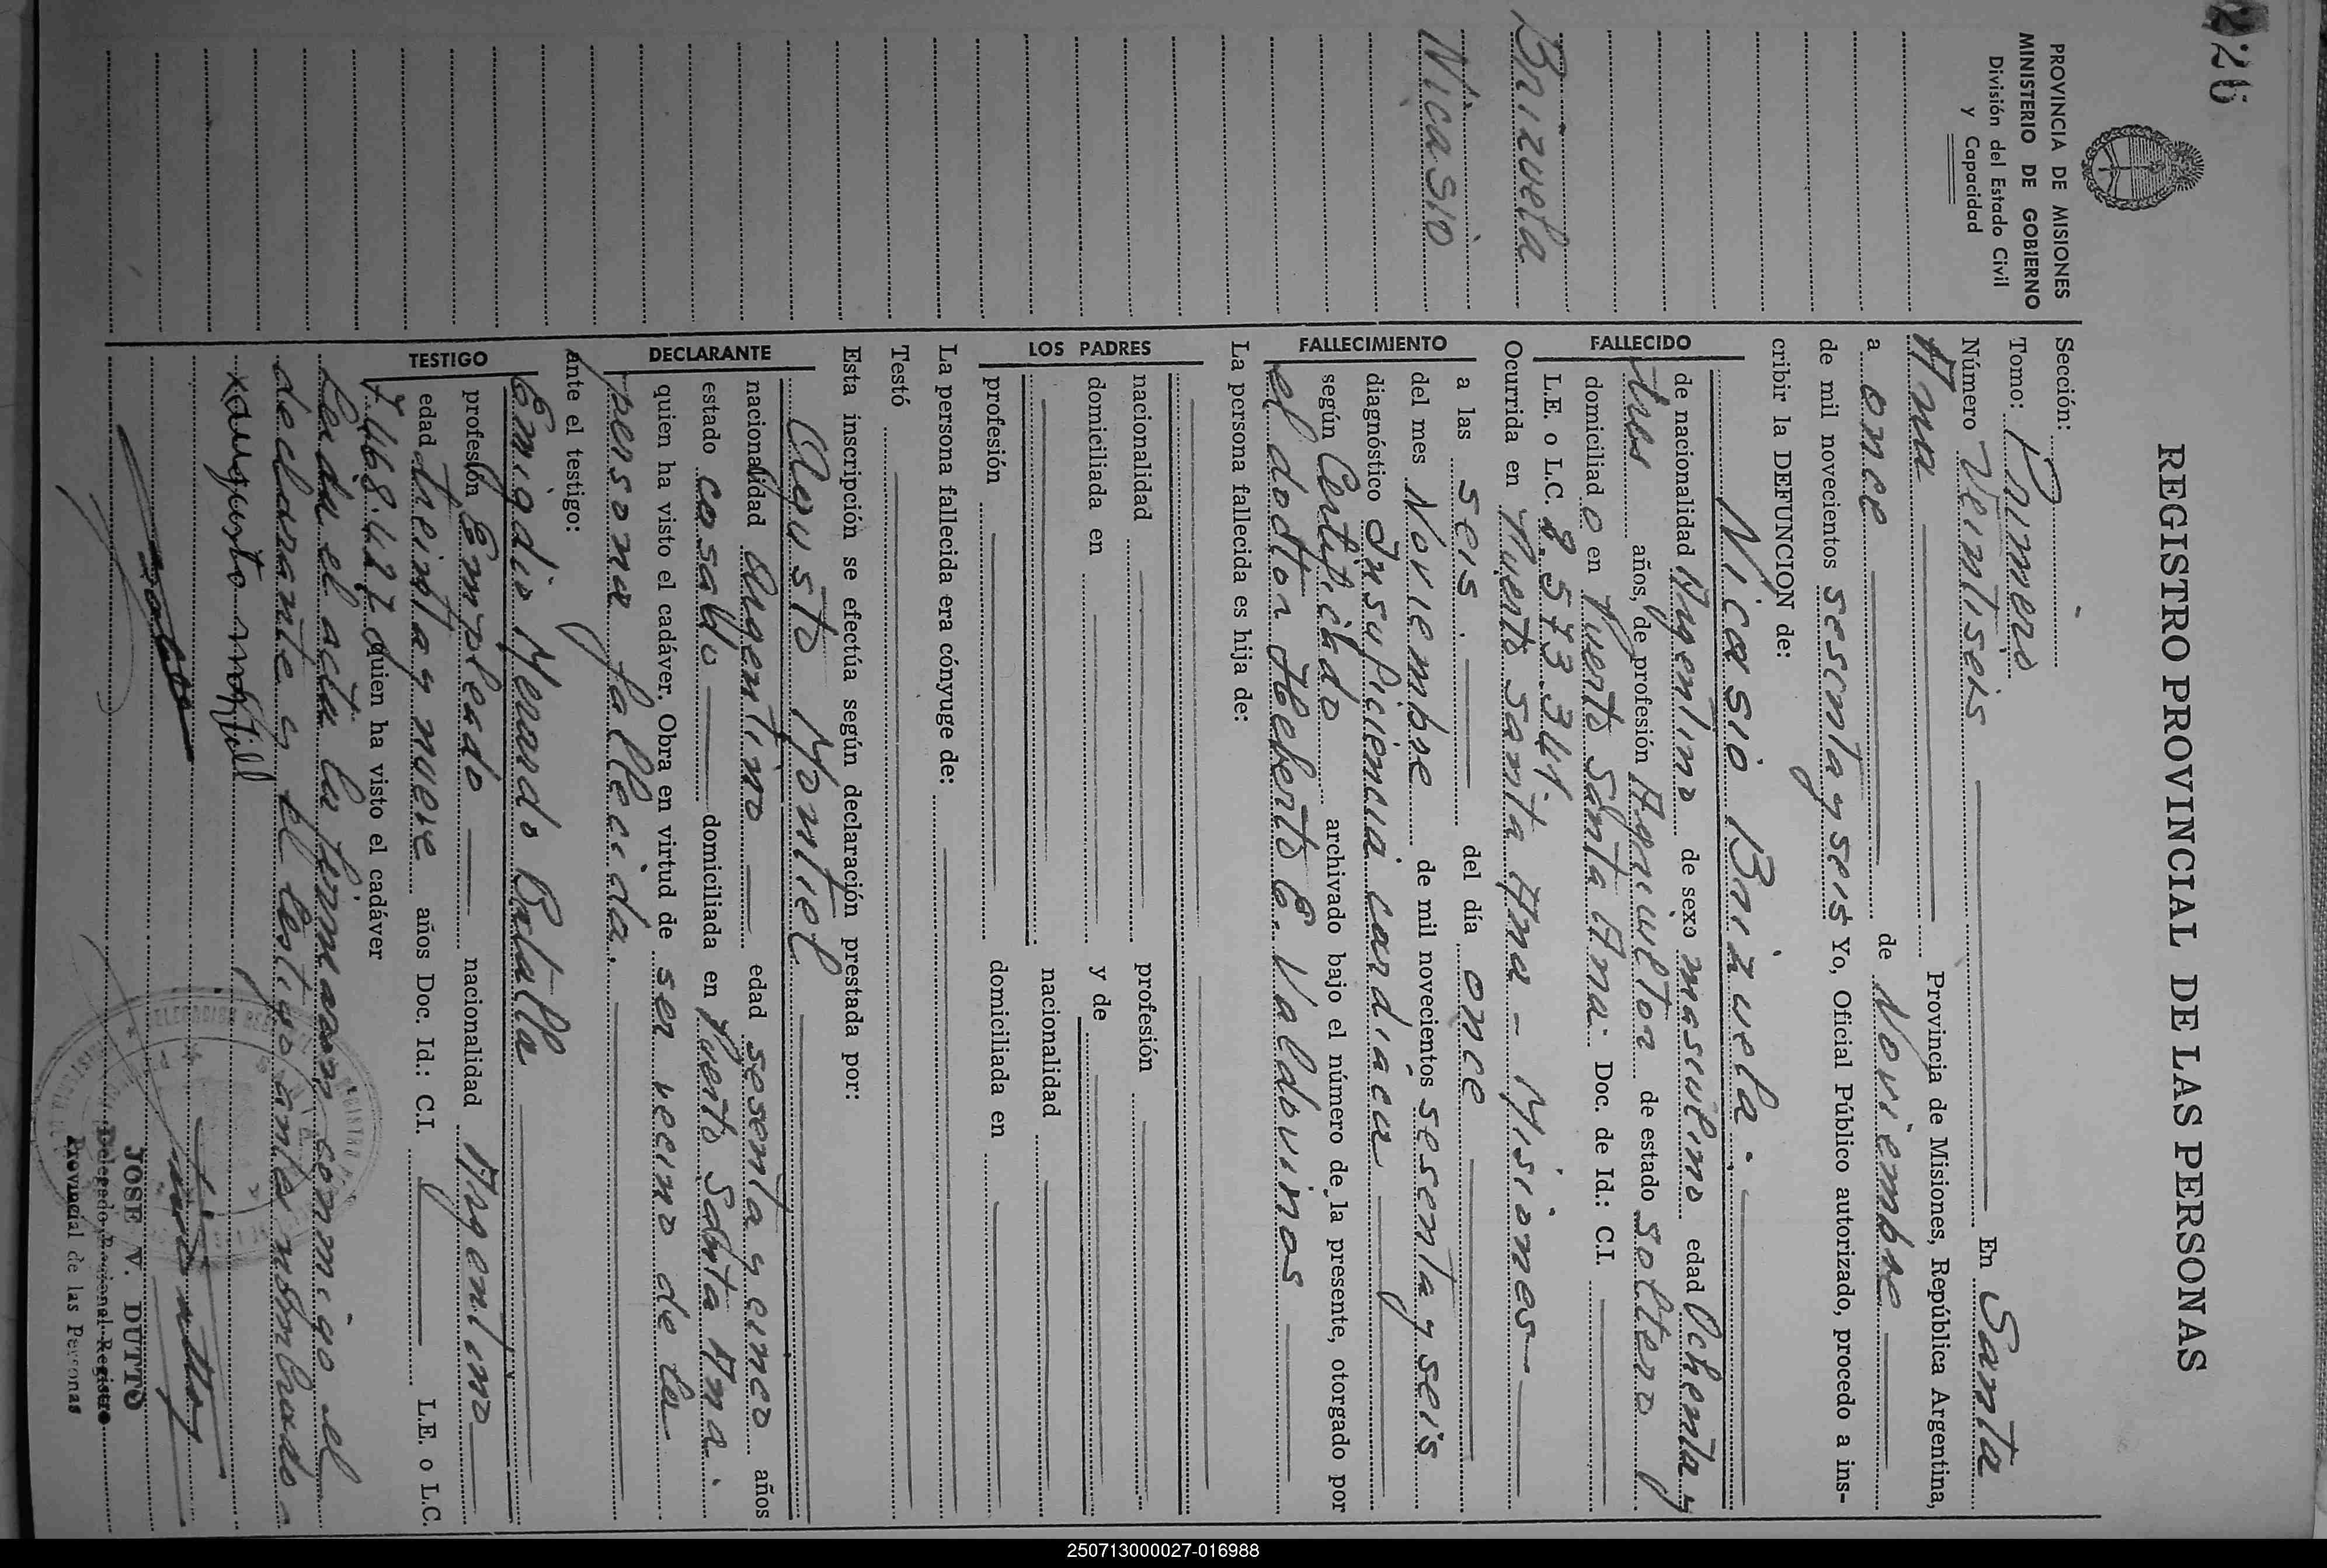 226
REGISTRO PROVINCIAL DE LAS PERSONAS
PROVINCIA DE MISIONES
MINISTERIO DE GOBIERNO
División del Estado Civil
y Capacidad
Brizuela
Nicasio
Sección:
Tomo: Primero
Número Veintiseis En Santa
Ana Provincia de Misiones, República Argentina,
a once de Noviembre
de mil novecientos sesenta y seis Yo, Oficial Público autorizado, procedo a ins-
cribir la DEFUNCION de:
FALLECIDO
Nicasio Brizuela.
de nacionalidad Argentino de sexo masculino edad Ochenta y
tres años, de profesión Agricultor de estado Soltero
domiciliado en Puerto Santa Ana. Doc. de Id.: C.I.
L.E. o L.C. 8.573.341.
Ocurrida en Puerto Santa Ana - Misiones
FALLECIMIENTO
a las seis. del día once
del mes Noviembre de mil novecientos sesenta y seis
diagnóstico Insuficiencia cardiaca
según Certificado archivado bajo el número de la presente, otorgado por
el doctor Heberto E. Valdovinos
La persona fallecida es hija de:
LOS PADRES
nacionalidad profesión
domiciliada en y de
nacionalidad
profesión domiciliada en
La persona fallecida era cónyuge de:
Testó
Esta inscripción se efectúa según declaración prestada por:
DECLARANTE
Agusto Montiel
nacionalidad Argentino edad sesenta y cinco años
estado casado domiciliada en Puerto Santa Ana.
quien ha visto el cadáver. Obra en virtud de ser vecino de la
persona fallecida.
ante el testigo:
TESTIGO
Emigdio Merardo Batalla
profesión Empleado nacionalidad Argentino
edad treinta y nueve años Doc. Id.: C.I. L.E. o L.C.
7.468.427 quien ha visto el cadáver
Leida el acta la firmaron conmigo el
declarante y el testigo antes nombrado
JOSE V. DUTTO
Delegado Regional Registro
Provincial de las Personas
250713000027-016988